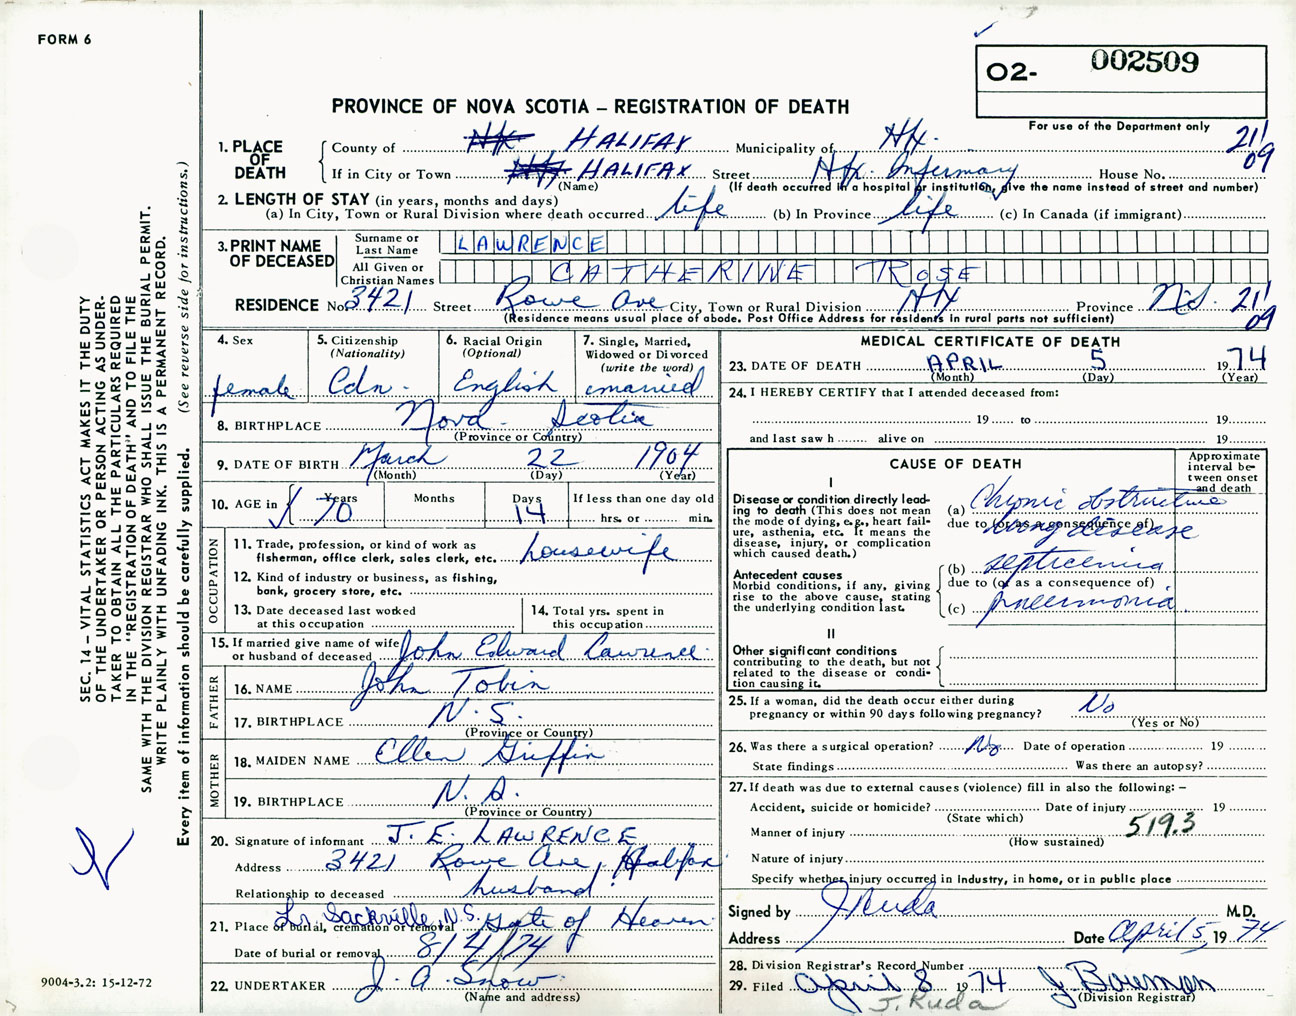 FORM 6
O2- 002509
For use of the Department only
PROVINCE OF NOVA SCOTIA – REGISTRATION OF DEATH
21/09
1. PLACE OF DEATH
County of HALIFAX Municipality of Hfx.
If in City or Town HALIFAX Street Hfx. Infirmary House No.
(Name) (If death occurred in a hospital or institution, give the name instead of street and number)
2. LENGTH OF STAY (in years, months and days)
(a) In City, Town or Rural Division where death occurred life (b) In Province life (c) In Canada (if immigrant)
3. PRINT NAME OF DECEASED
Surname or Last Name LAWRENCE
All Given or Christian Names CATHERINE ROSE
RESIDENCE No. 3421 Street Rowe Ave City, Town or Rural Division Hfx Province N.S. 21/09
(Residence means usual place of abode. Post Office Address for residents in rural parts not sufficient)
4. Sex female
5. Citizenship (Nationality) Cdn.
6. Racial Origin (Optional) English
7. Single, Married, Widowed or Divorced (write the word) married
8. BIRTHPLACE Nova Scotia
(Province or Country)
9. DATE OF BIRTH March 22 1904
(Month) (Day) (Year)
10. AGE in Years 70 Months Days 14 If less than one day old
hrs. or min.
OCCUPATION
11. Trade, profession, or kind of work as fisherman, office clerk, sales clerk, etc. housewife
12. Kind of industry or business, as fishing, bank, grocery store, etc.
13. Date deceased last worked at this occupation
14. Total yrs. spent in this occupation
15. If married give name of wife or husband of deceased John Edward Lawrence
FATHER
16. NAME John Tobin
17. BIRTHPLACE N.S.
(Province or Country)
MOTHER
18. MAIDEN NAME Ellen Griffin
19. BIRTHPLACE N.S.
(Province or Country)
20. Signature of informant J. E. LAWRENCE
Address 3421 Rowe Ave, Halifax
Relationship to deceased husband
21. Place of burial, cremation or removal Lr. Sackville, N.S. Gate of Heaven
Date of burial or removal 8/4/74
22. UNDERTAKER J. A. Snow
(Name and address)
MEDICAL CERTIFICATE OF DEATH
23. DATE OF DEATH APRIL 5 1974
(Month) (Day) (Year)
24. I HEREBY CERTIFY that I attended deceased from:
19 to 19
and last saw h alive on 19
CAUSE OF DEATH
Approximate interval between onset and death
I
Disease or condition directly leading to death (This does not mean the mode of dying, e.g., heart failure, asthenia, etc. It means the disease, injury, or complication which caused death.)
(a) Chronic obstructive lung disease
due to (or as a consequence of)
Antecedent causes
Morbid conditions, if any, giving rise to the above cause, stating the underlying condition last.
(b) septicemia
due to (or as a consequence of)
(c) pneumonia
II
Other significant conditions
contributing to the death, but not related to the disease or condition causing it.
25. If a woman, did the death occur either during pregnancy or within 90 days following pregnancy? No
(Yes or No)
26. Was there a surgical operation? No Date of operation 19
State findings Was there an autopsy?
27. If death was due to external causes (violence) fill in also the following: –
Accident, suicide or homicide? Date of injury 19
(State which)
519.3
Manner of injury
(How sustained)
Nature of injury
Specify whether injury occurred in industry, in home, or in public place
Signed by J Ruda M.D.
Address Date April 5, 1974
28. Division Registrar's Record Number
29. Filed April 8 1974 J. Bowman
J. Ruda (Division Registrar)
SEC. 14 – VITAL STATISTICS ACT MAKES IT THE DUTY
OF THE UNDERTAKER OR PERSON ACTING AS UNDERTAKER
TO OBTAIN ALL THE PARTICULARS REQUIRED
IN THE "REGISTRATION OF DEATH" AND TO FILE THE
SAME WITH THE DIVISION REGISTRAR WHO SHALL ISSUE THE BURIAL PERMIT.
WRITE PLAINLY WITH UNFADING INK. THIS IS A PERMANENT RECORD.
Every item of information should be carefully supplied. (See reverse side for instructions.)
9004-3.2: 15-12-72